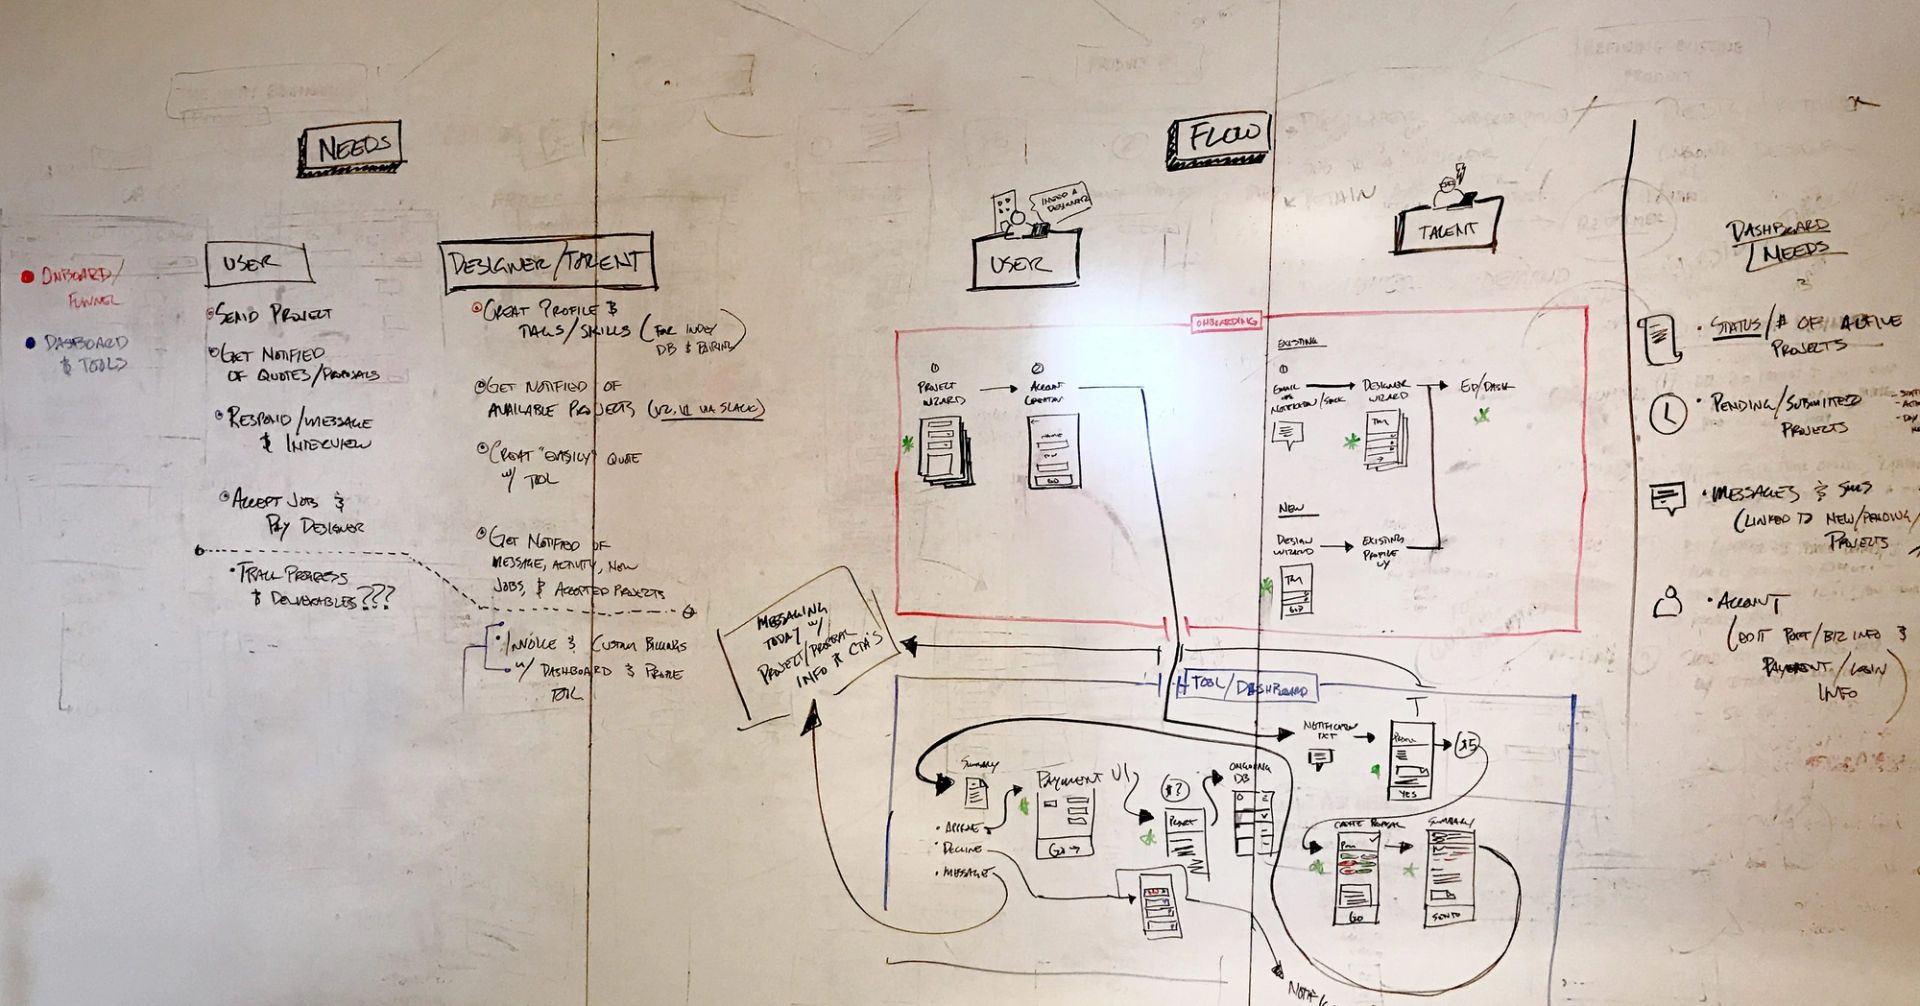 NEEDS
ONBOARD/
FUNNEL
DASHBOARD
& TOOLS
USER
SEND PROJECT
GET NOTIFIED
OF QUOTES/PROPOSALS
RESPOND/MESSAGE
& INTERVIEW
ACCEPT JOB &
PAY DESIGNER
TRACK PROGRESS
& DELIVERABLES???
DESIGNER/TALENT
CREAT PROFILE &
TAGS/SKILLS (FOR INDEX
DB & PAIRING)
GET NOTIFIED OF
AVAILABLE PROJECTS (V2, V1 VIA SLACK)
CREAT "EASILY" QUOTE
W/ TOOL
GET NOTIFIED OF
MESSAGE, ACTIVITY, NEW
JOBS, & ACCEPTED PROJECTS
INVOICE & CUSTOM BILLINGS
W/ DASHBOARD & PROFILE
TOOL
FLOW
I NEED A
DESIGNER
USER
TALENT
ONBOARDING
1
PROJECT
WIZARD
2
ACCOUNT
CREATION
NAME
GO
EXISTING
1
EMAIL
NOTIFICATION/SLACK
DESIGNER
WIZARD
ED/DASH
NEW
DESIGN
WIZARD
EXISTING
PROFILE
UX
GO
MESSAGING
TODAY W/
PROJECT/PROPOSAL
INFO & CTA'S
TOOL/DASHBOARD
NOTIFICATION
TXT
YES
SUMMARY
APPROVE
DECLINE
MESSAGE
PAYMENT UI
GO →
$?
PROJECT
ONGOING
DB
CREATE PROPOSAL
GO
SUMMARY
SEND TO
DASHBOARD
NEEDS
STATUS/# OF ACTIVE
PROJECTS
PENDING/SUBMITTED
PROJECTS
MESSAGES & SMS
(LINKED TO NEW/PENDING/
PROJECTS
ACCOUNT
(EDIT PORT/BIZ INFO &
PAYMENT/LOGIN
INFO)